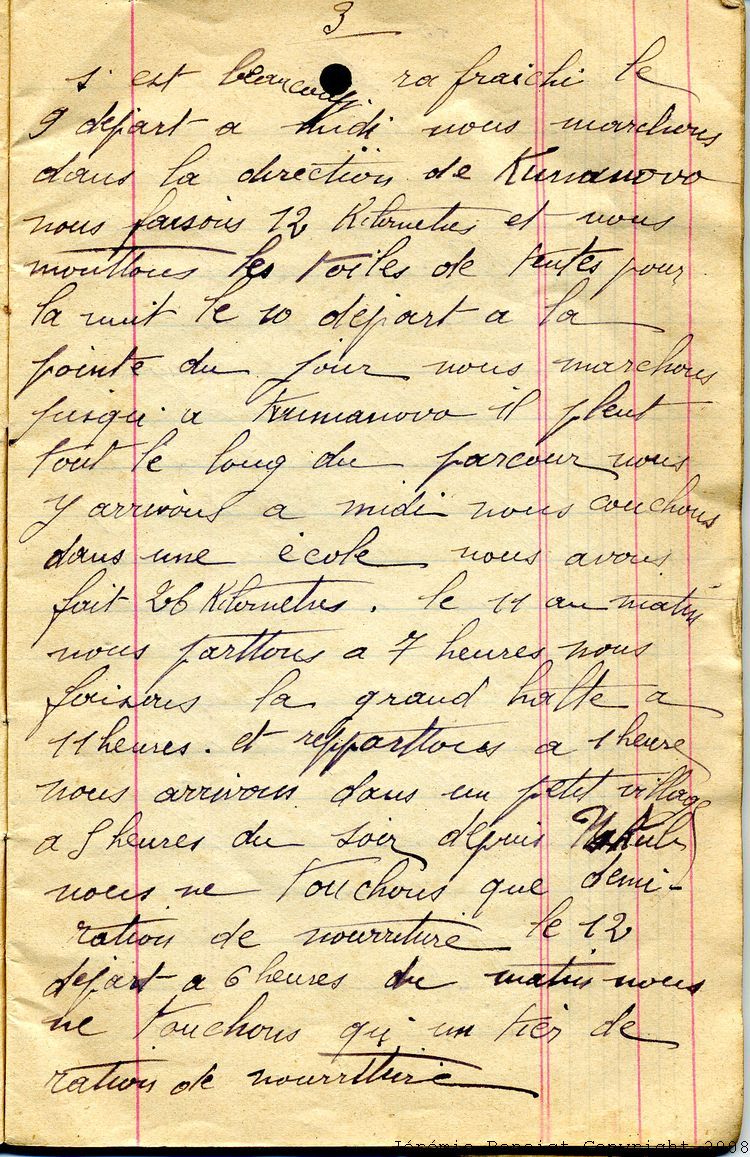 3
s est beaucoup rafraichi le
9 départ a midi nous marchons
dans la direction de Kumanovo
nous faisons 12 Kilometres et nous
monttons les toiles de tentes pour
la nuit le 10 départ a la
pointe du jour nous marchons
jusqu'a Kumanovo il pleut
tout le long du parcour nous
y arrivons a midi nous couchons
dans une école nous avons
fait 26 Kilometres. le 11 au matin
nous parttons a 7 heures nous
faisons la grand halte a
11 heures. et repparttons a 1 heure
nous arrivons dans un petit village
a 5 heures du soir depuis
nous ne touchons que demi-
ration de nourriture le 12
départ a 6 heures du matin nous
ne touchons qu'un tier de
ration de nourriture
Jérémie Benoist Copyright 2008